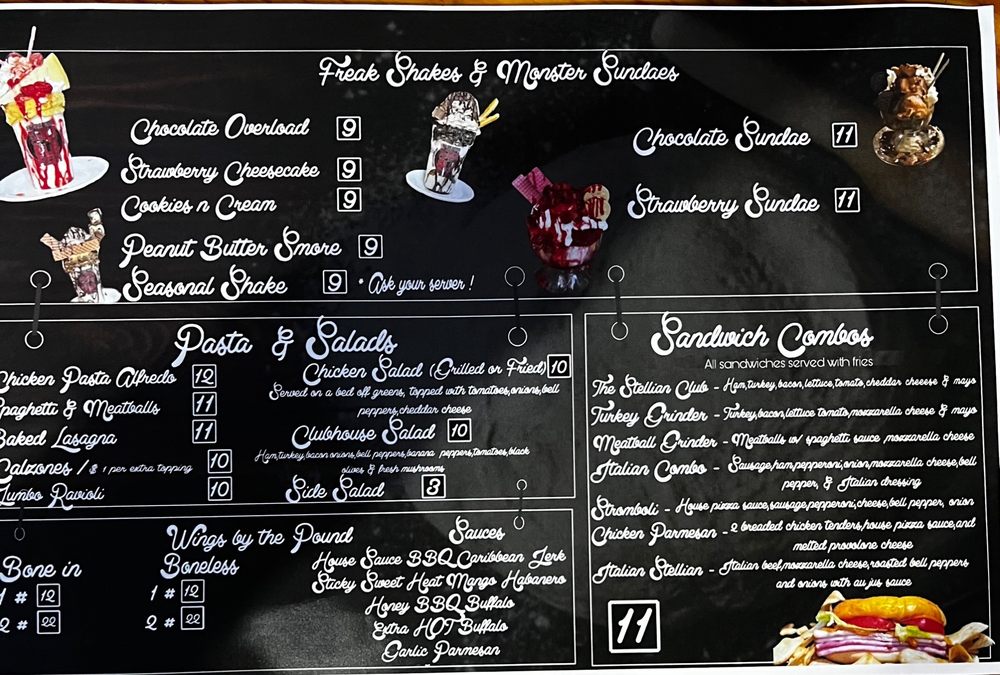 Freak Shakes & Monster Sundaes
Chocolate Overload 9
Strawberry Cheesecake 9
Cookies n Cream 9
Peanut Butter Smore 9
Seasonal Shake 9 * Ask your server !
Chocolate Sundae 11
Strawberry Sundae 11
Pasta & Salads
Chicken Pasta Alfredo 12
Spaghetti & Meatballs 11
Baked Lasagna 11
Calzones / $ 1 per extra topping 10
Jumbo Ravioli 10
Chicken Salad (Grilled or Fried) 10
Served on a bed off greens, topped with tomatoes,onions,bell
peppers,cheddar cheese
Clubhouse Salad 10
Ham,turkey,bacon,onions,bell peppers,banana peppers,tomatoes,black
olives & fresh mushrooms
Side Salad 3
Wings by the Pound
Bone in
1 # 12
2 # 22
Boneless
1 # 12
2 # 22
Sauces
House Sauce BBQ Caribbean Jerk
Sticky Sweet Heat Mango Habanero
Honey BBQ Buffalo
Extra HOT Buffalo
Garlic Parmesan
Sandwich Combos
All sandwiches served with fries
The Stellian Club - Ham,turkey,bacon,lettuce,tomato,cheddar cheese & mayo
Turkey Grinder - Turkey,bacon,lettuce tomato,mozzarella cheese & mayo
Meatball Grinder - Meatballs w/ spaghetti sauce mozzarella cheese
Italian Combo - Sausage,ham,pepperoni,onion,mozzarella cheese,bell
pepper, & Italian dressing
Stromboli - House pizza sauce,sausage,pepperoni,cheese,bell pepper, onion
Chicken Parmesan - 2 breaded chicken tenders,house pizza sauce,and
melted provolone cheese
Italian Stellian - Italian beef,mozzarella cheese,roasted bell peppers
and onions with au jus sauce
11